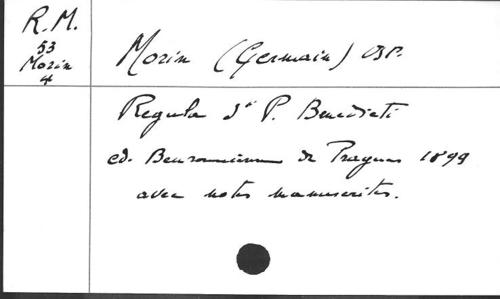 R. M.
53
Morin
4
Morin (Germain)
Regula P. Benedicti
ed. de Prague 1899
avec notes manuscrites.